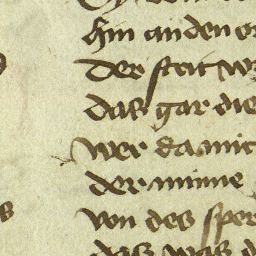 hin an den
Der streit
das gar die
wer da mit
der minne
von des sper
das was